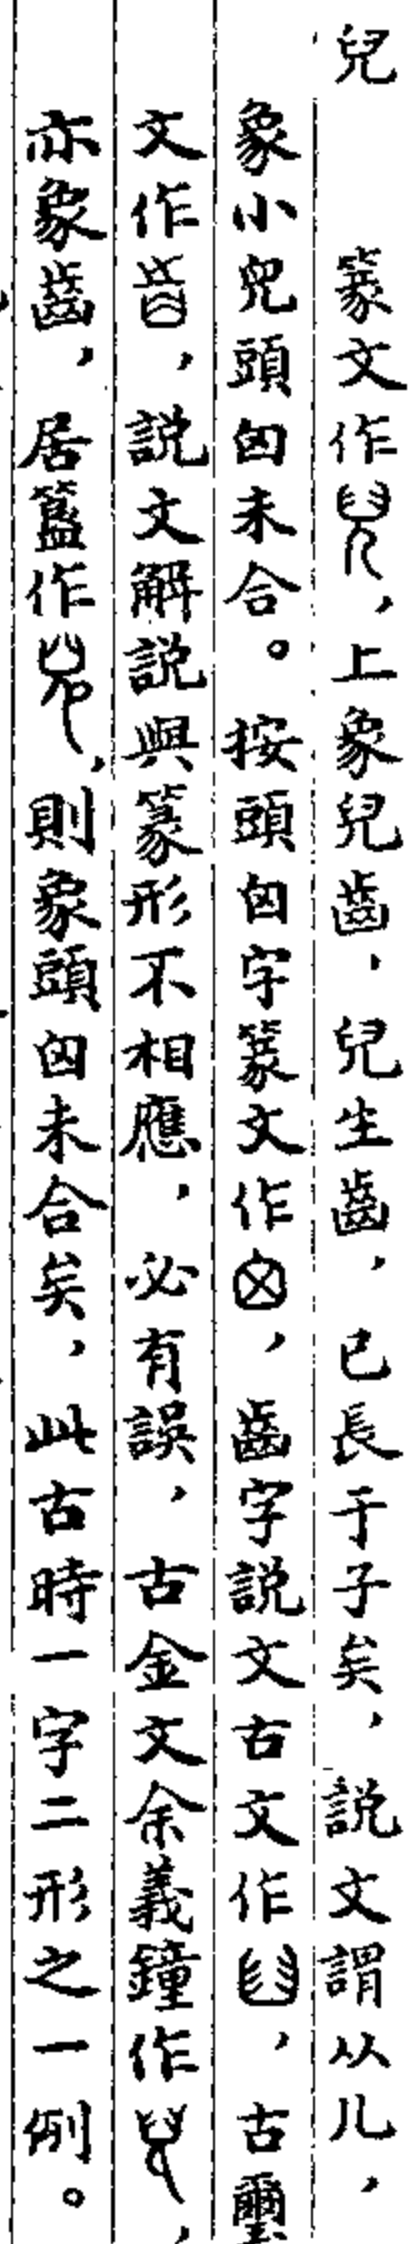 兒　篆文作，上象兒齒，兒生齒，已長于子矣，說文謂从儿，
象小兒頭囟未合。按頭囟字篆文作，齒字說文古文作，古璽
文作，說文解說與篆形不相應，必有誤，古金文余義鐘作，
亦象齒，居簋作，則象頭囟未合矣，此古時一字二形之一例。